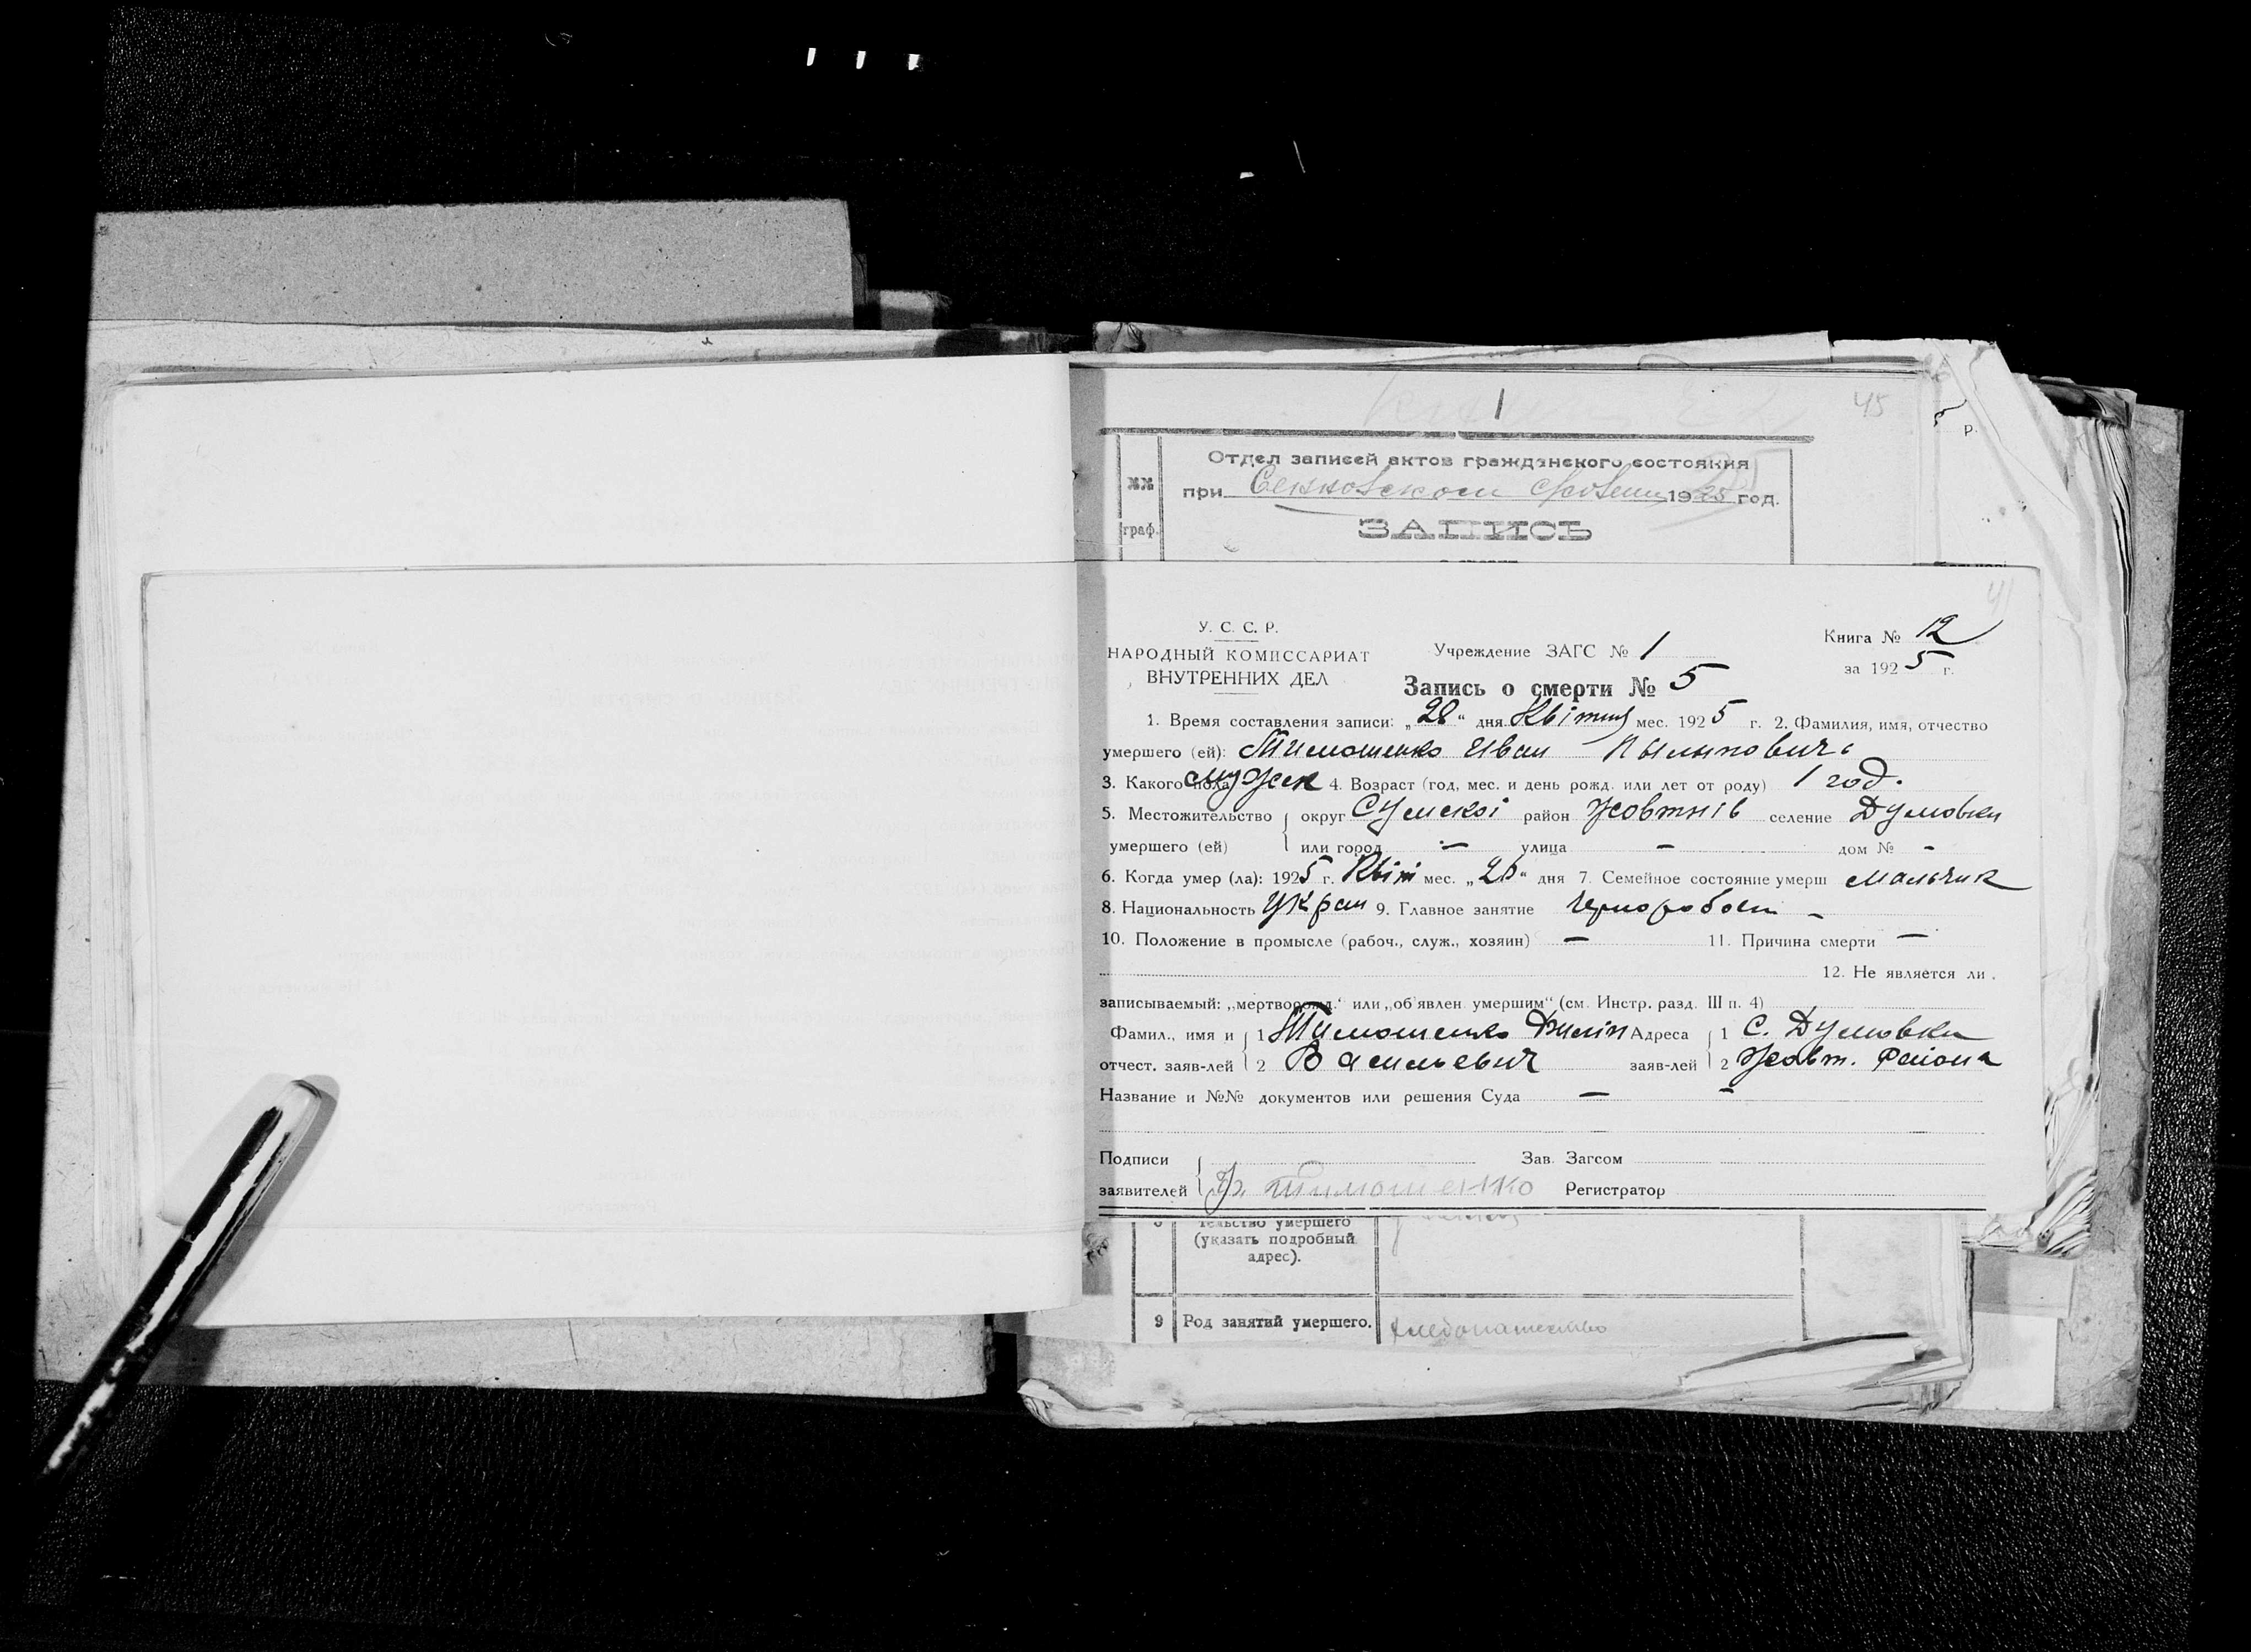 1
45
р.
Отдел записей актов гражданского состояния
№№ при 1925 год.
граф.
ЗАПИСЬ
У. С. С. Р.
Книга № 12
НАРОДНЫЙ КОМИССАРИАТ Учреждение ЗАГС № 1
ВНУТРЕННИХ ДЕЛ за 1925 г.
Запись о смерти № 5
1. Время составления записи: „28“ дня Квітня мес. 1925 г. 2. Фамилия, имя, отчество
умершего (ей): Тимошенко Иван Пылыповичь
3. Какого пола мужск 4. Возраст (год, мес. и день рожд. или лет от роду) 1 год.
5. Местожительство округ Сумскоі район Жовтнів селение Думовки
умершего (ей) или город — улица — дом № -
6. Когда умер (ла): 1925 г. Квіт мес. „28“ дня 7. Семейное состояние умерш мальчик
8. Национальность Украи 9. Главное занятие —
10. Положение в промысле (рабоч., служ., хозяин) — 11. Причина смерти —
12. Не является ли
записываемый: „мертворожд.“ или „об'явлен умершим“ (см. Инстр. разд. III п. 4)
Фамил., имя и 1 Тимошенко Адреса 1 С. Думовки
отчест. заяв-лей 2 Васильевич заяв-лей 2 Жовт. Района
Название и №№ документов или решения Суда — —
Подписи Зав. Загсом
заявителей Тимошенко Регистратор
тельство умершего
(указать подробный
адрес).
9 Род занятий умершего.